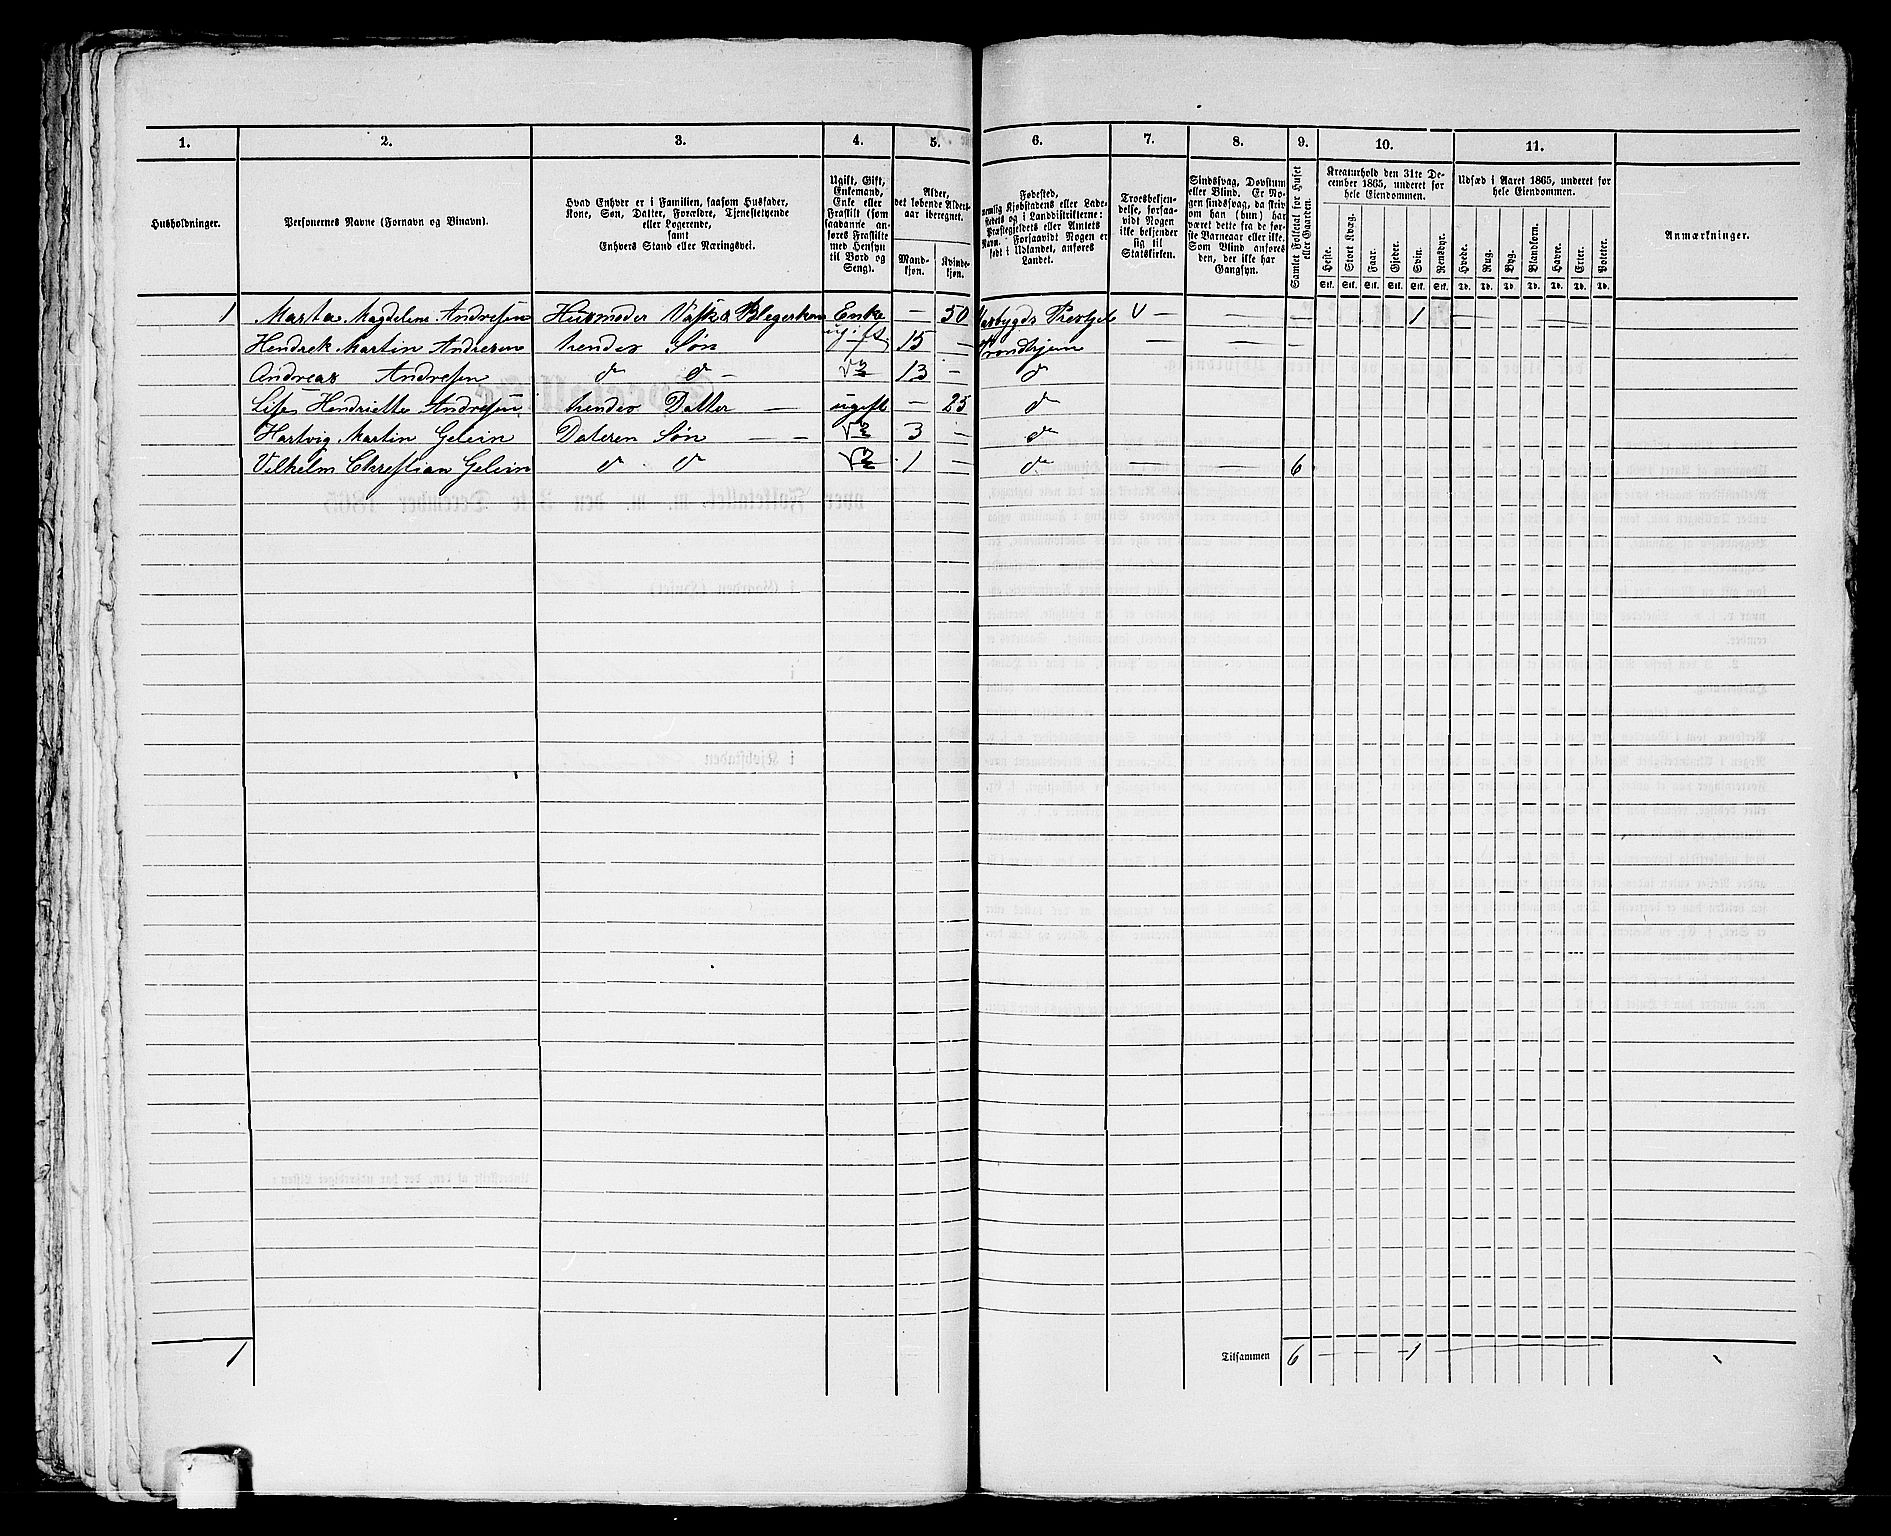 1. 2. 3. 4. 5. 6. 7. 8. 9. 10. 11.
Husholdninger.
Personernes Navne (Fornavn og Binavn).
Hvad Enhver er i Familien, saasom Husfader,
Kone, Søn, Datter, Forældre, Tjenestetyende
eller Logerende,
samt
Enhvers Stand eller Næringsvei.
Ugift, Gift,
Enkemand,
Enke eller
Fraskilt (som
saadanne an-
føres Fraskilte
med Hensyn
til Bord og
Seng).
Alder,
det løbende Alders-
aar iberegnet.
Mand-
kjøn.
Kvinde-
kjøn.
Fødested,
nemlig Kjøbstadens eller Lade-
stedets og i Landdistrikterne:
Præstegjeldets eller Amtets
Navn. Forsaavidt Nogen er
født i Udlandet, anføres
Landet.
Troesbekjen-
delse, forsaa-
vidt Nogen
ikke bekjender
sig til
Statskirken.
Sindssvag, Døvstum
eller Blind. Er No-
gen sindssvag, da skriv
om han (hun) har
været dette fra de før-
ste Barneaar eller ikke.
Som Blind anføres
den, der ikke har
Gangsyn.
Samlet Folketal for Huset
eller Gaarden.
Kreaturhold den 31te De-
cember 1865, underet for
hele Eiendommen.
Heste. Stort Kvæg. Faar. Gjeder. Svin. Rensdyr.
Stk. Stk. Stk. Stk. Stk. Stk.
Udsæd i Aaret 1865, underet for
hele Eiendommen.
Hvede. Rug. Byg. Blandkorn. Havre. Erter. Poteter.
Td. Td. Td. Td. Td. Td. Td.
Anmærkninger.
1 Marta Magdelene Andresen Husmoder Vasker Enke — 50 — — 1 — — —
Hendrek Martin Andresen hendes Søn ugift 15 — Trondhjem — —
Andreas Andresen d d — 13 — d
Lise Henriette Andresen hendes Datter — ugift — 25 d
Hartvig Martin Gelein Dateren Søn — — 3 — d
Vilhelm Chrestian Gelein d d 1 — d — — 6
1 Tilsammen 6 — — — 1 —